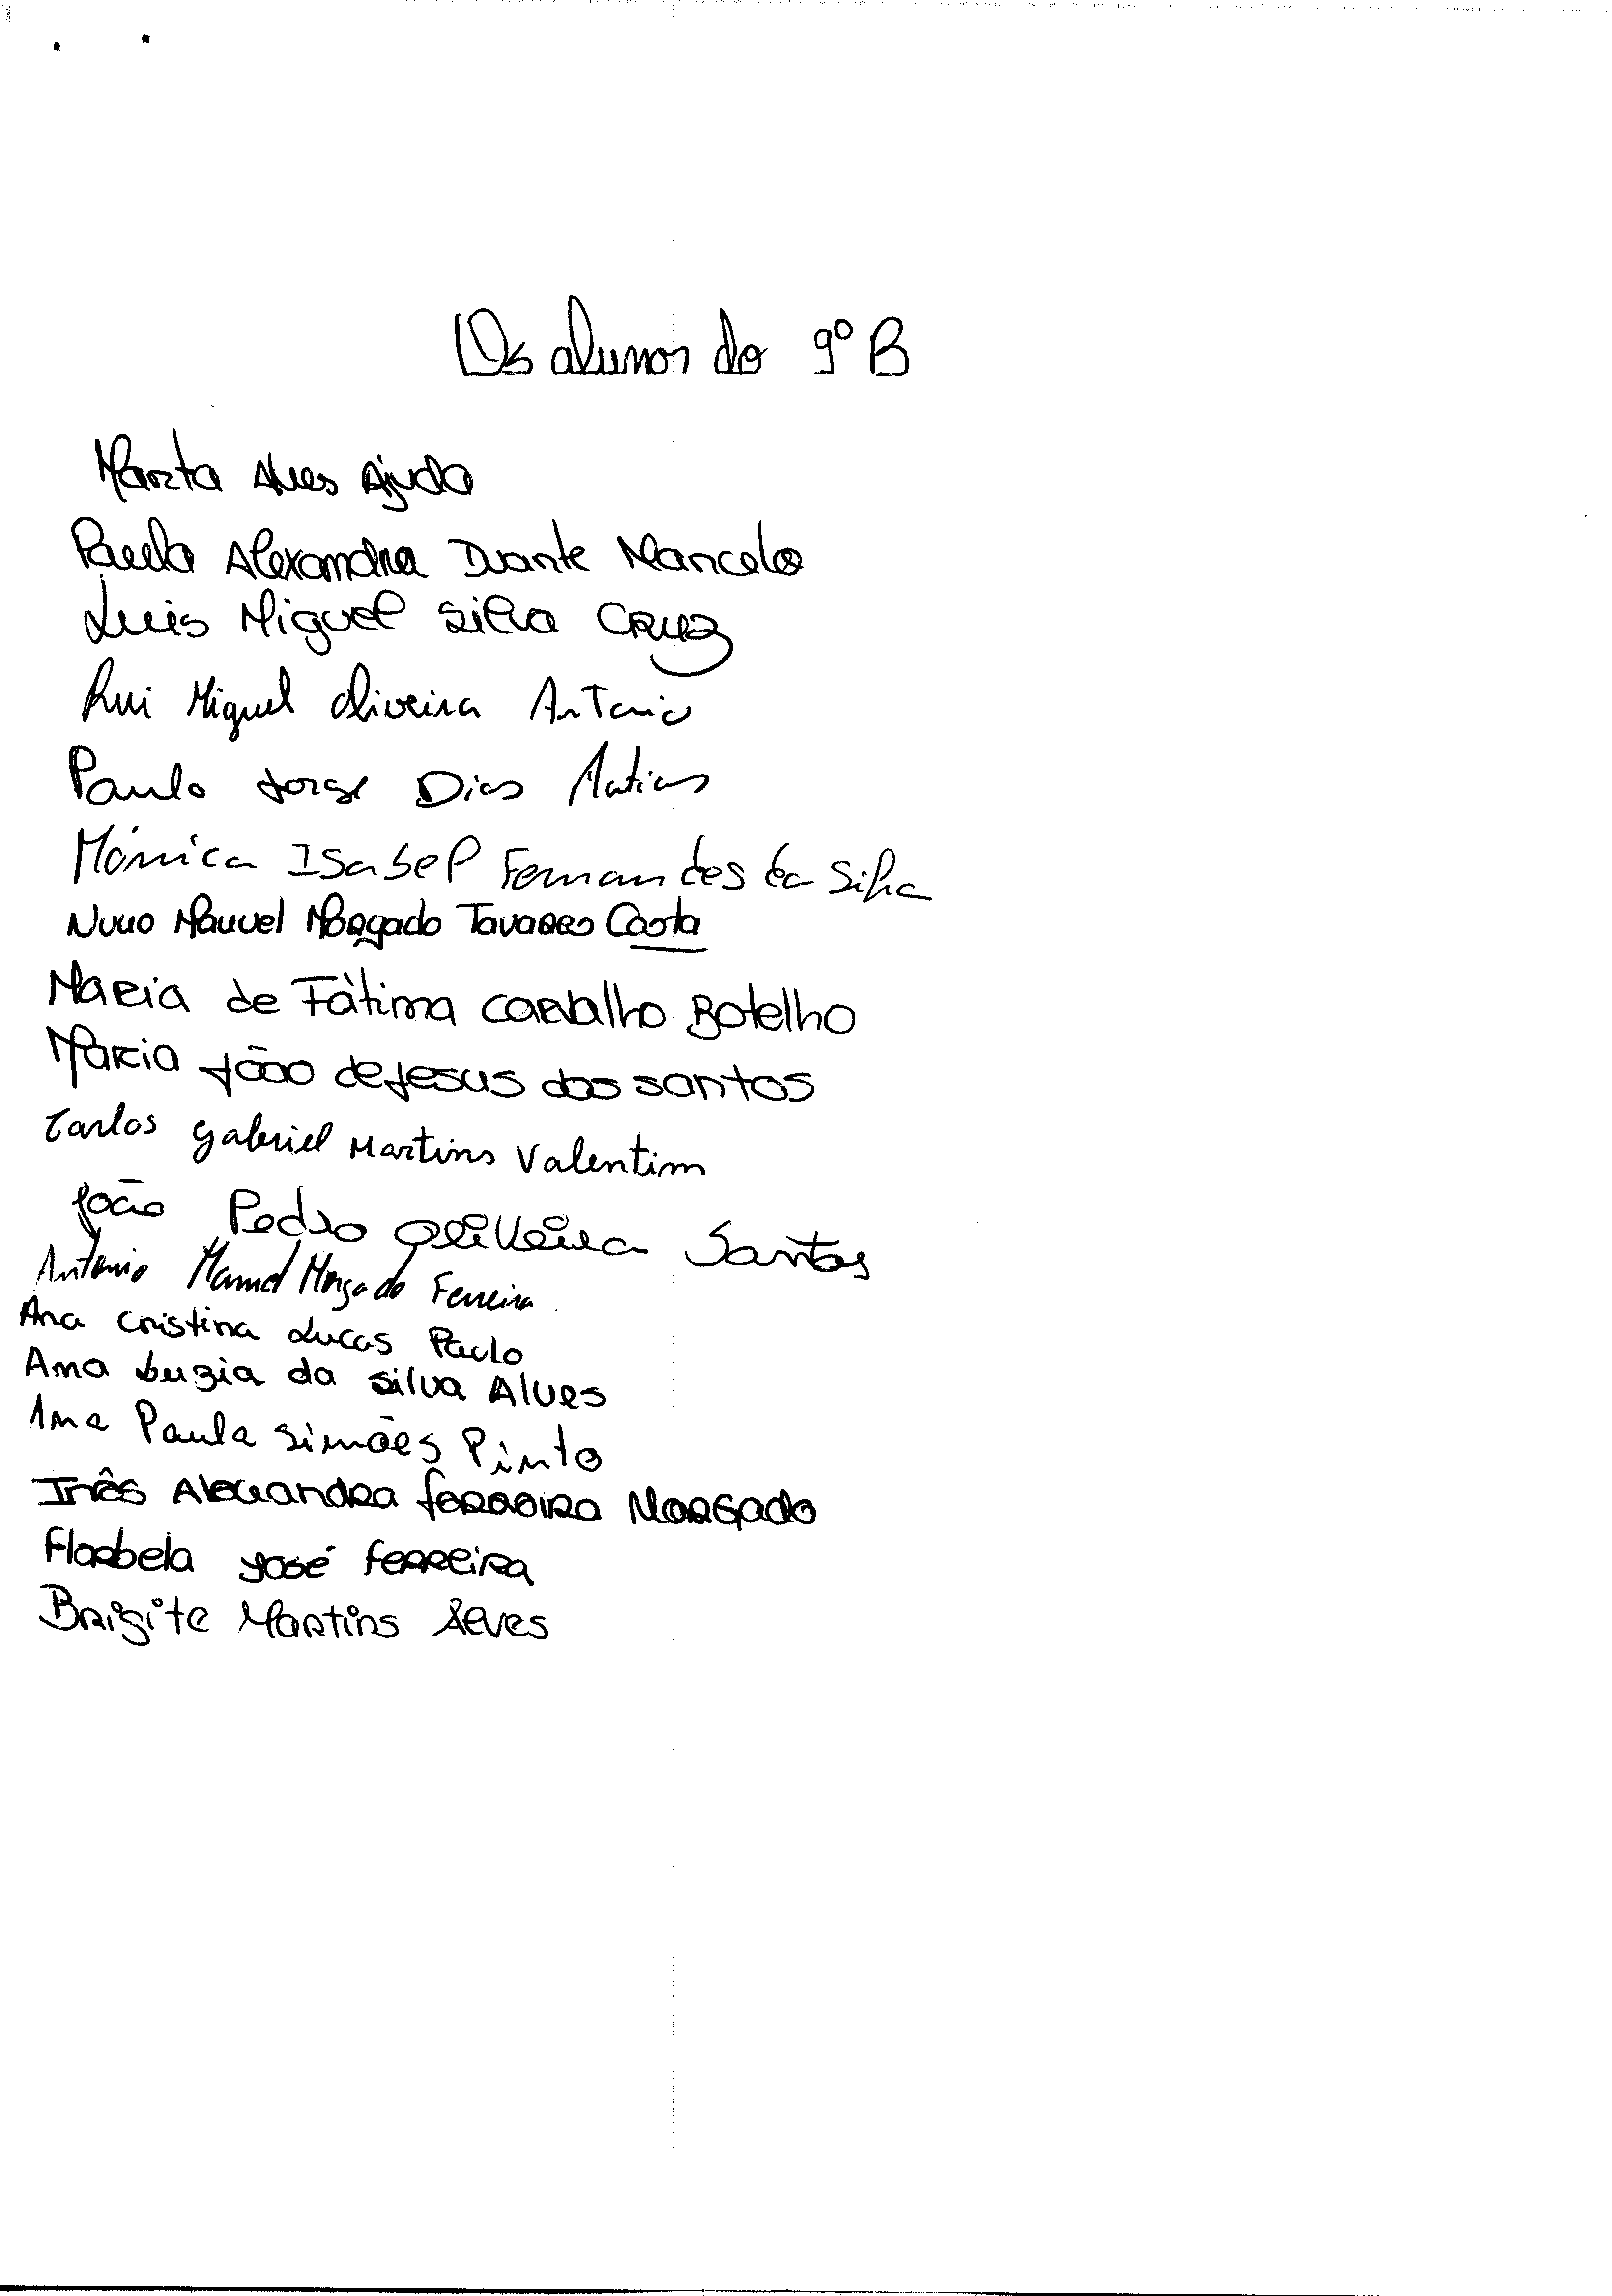 Os alunos do 9º B
Marta Alves Ajuda
Paula Alexandra Duarte Marcelo
Luis Miguel Silva Cruz
Rui Miguel Oliveira Antonio
Paulo Jorge Dias Matias
Mónica Isabel Fernandes da Silva
Nuno Manuel Morgado Tavares Costa
Maria de Fátima Carvalho Botelho
Maria João de Jesus dos Santos
Carlos Gabriel Martins Valentim
João Pedro Oliveira Santos
António Manuel Morgado Ferreira
Ana Cristina Lucas Paulo
Ana Luzia da Silva Alves
Ana Paula Simões Pinto
Inês Alexandra Ferreira Morgado
Florbela José Ferreira
Brigite Martins Alves